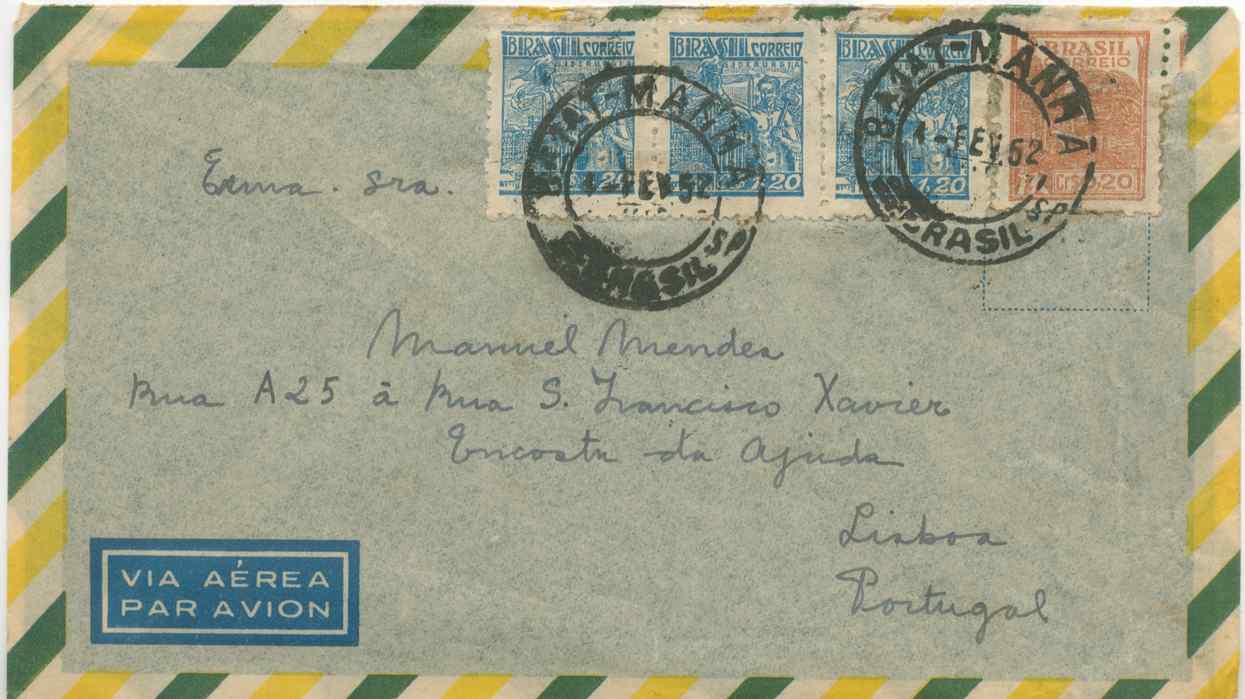 BRASIL CORREIO
SIDERURGIA
1,20
BRASIL CORREIO
SIDERURGIA
1,20
BRASIL CORREIO
1,20
BRASIL
CORREIO
CR$ 0,20
MANHÃ
1-FEV.52
SP
BRASIL
MANHÃ
1-FEV.52
SP
BRASIL
Exma. Sra.
Manuel Mendes
Rua A25 à Rua S. Francisco Xavier
Encosta da Ajuda
Lisboa
Portugal
VIA AÉREA
PAR AVION